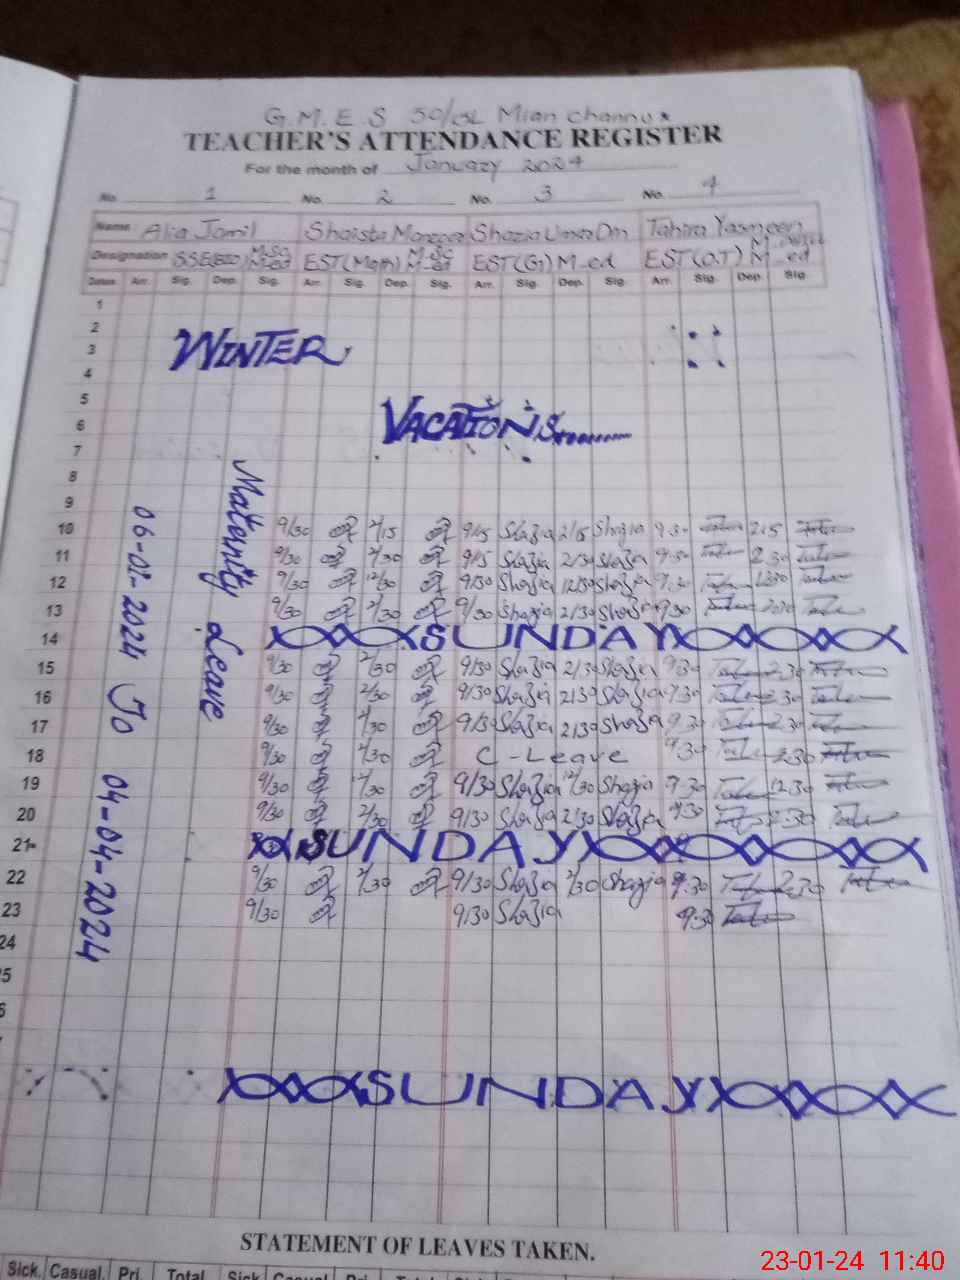 G.M.E.S 50/15L Mian Channu
TEACHER'S ATTENDANCE REGISTER
For the month of January 2024
No. 1 No. 2 No. 3 No. 4
Name Alia Jamil Shaista Manzoor Shazia Umar Din Tahira Yasmeen
Designation SSE(Bio) M.Sc M-ed EST(Math) M.Sc M-ed EST(G) M-ed EST(O.T) M-ed
Dates Arr. Sig. Dep. Sig. Arr Sig. Dep. Sig. Arr. Sig. Dep. Sig. Arr. Sig. Dep. Sig.
1
2
3 WINTER
4
5
6 VACATIONS
7
8
9
Maternity Leave
06-01-2024 To 04-04-2024
10 9/30 2/15 9/15 Shazia 2/15 Shazia 9.30 2.15
11 9/30 2/30 9/15 Shazia 2/30 Shazia 9.30 2.30
12 9/30 12/30 9/30 Shazia 12/30 Shazia 9.30 12.30
13 9/30 2/30 9/30 Shazia 2/30 Shazia 9.30 2.30
14 SUNDAY
15 9/30 2/30 9/30 Shazia 2/30 Shazia 9.30 2.30
16 9/30 2/30 9/30 Shazia 2/30 Shazia 9.30 2.30
17 9/30 2/30 9/30 Shazia 2/30 Shazia 9.30 2.30
18 9/30 2/30 C-Leave 9.30 2.30
19 9/30 12/30 9/30 Shazia 12/30 Shazia 9.30 12.30
20 9/30 2/30 9/30 Shazia 2/30 Shazia 9.30 2.30
21 SUNDAY
22 9/30 2/30 9/30 Shazia 2/30 Shazia 9.30 2.30
23 9/30 9/30 Shazia 9.30
24
SUNDAY
STATEMENT OF LEAVES TAKEN.
Sick. Casual. Pri. Total Sick Casual
23-01-24 11:40